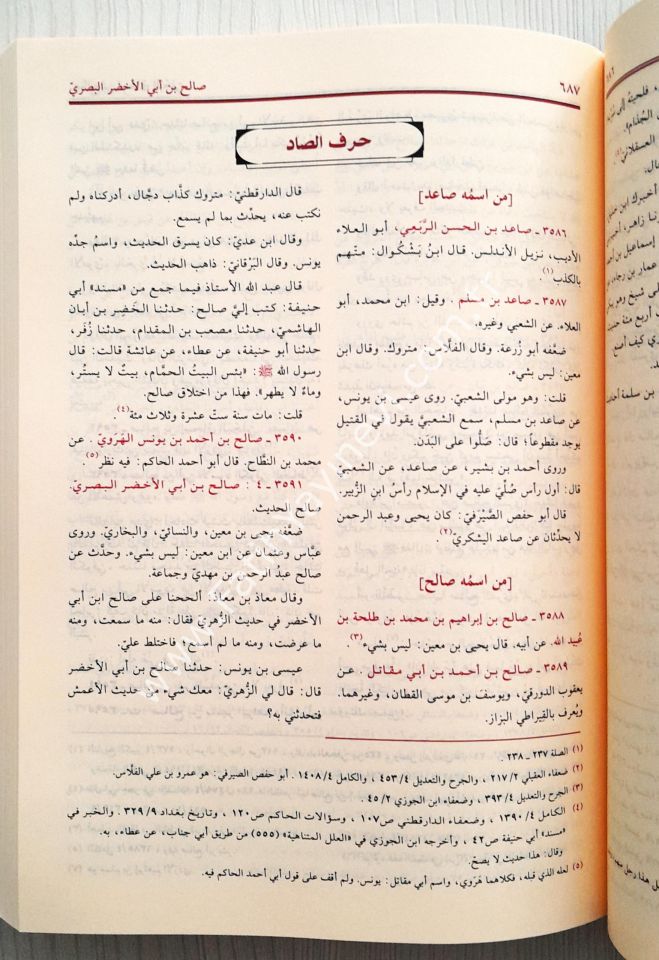 ٦٨٧
صالح بن أبي الأخضر البصريّ
حرف الصاد
[من اسمُه صاعد]
٣٥٨٦ ـ صاعد بن الحسن الرَّبَعي، أبو العلاء
الأديب، نزيل الأندلس. قال ابنُ بَشْكُوال: متّهم
بالكذب(١).
٣٥٨٧ ـ صاعد بن مسلم . وقيل: ابن محمد، أبو
العلاء. عن الشعبي وغيره.
ضعّفه أبو زُرعة. وقال الفلّاس: متروك. وقال ابن
معين: ليس بشيء.
قلت: وهو مولى الشعبيّ. روى عيسى بن يونس،
عن صاعد بن مسلم، سمع الشعبيَّ يقول في القتيل
يوجد مقطوعاً؛ قال: صَلُّوا على البَدَن.
وروى أحمد بن بشير، عن صاعد، عن الشعبيّ
قال: أول رأس صُلِّيَ عليه في الإسلام رأسُ ابنِ الزُّبير.
قال أبو حفص الصَّيْرَفيّ: كان يحيى وعبد الرحمن
لا يحدِّثان عن صاعد اليشكريّ(٢).
[من اسمُه صالح]
٣٥٨٨ ـ صالح بن إبراهيم بن محمد بن طلحة بن
عُبيد الله. عن أبيه. قال يحيى بن معين: ليس بشيء(٣).
٣٥٨٩ ـ صالح بن أحمد بن أبي مقاتل . عن
يعقوب الدورقيّ، ويوسف بن موسى القطان، وغيرهما.
ويُعرف بالقيراطي البزاز.
قال الدارقطنيّ: متروك كذّاب دجّال، أدركناه ولم
نكتب عنه، يحدِّث بما لم يسمع.
وقال ابن عديّ: كان يسرق الحديث، واسمُ جدِّه
يونس. وقال البَرْقانيّ: ذاهب الحديث.
قال عبد الله الأستاذ فيما جمع من «مسند» أبي
حنيفة: كتب إليّ صالح: حدثنا الخَضِر بن أبان
الهاشميّ، حدثنا مصعب بن المقدام، حدثنا زُفَر،
حدثنا أبو حنيفة، عن عطاء، عن عائشة قالت: قال
رسول الله ﷺ: «بئس البيتُ الحمَّام، بيتٌ لا يستُر،
وماءٌ لا يطهر». فهذا من اختلاق صالح.
قلت: مات سنة ستّ عشرة وثلاث مئة(٤).
٣٥٩٠ ـ صالح بن أحمد بن يونس الهَرَويّ . عن
محمد بن النطَّاح. قال أبو أحمد الحاكم: فيه نظر(٥).
٣٥٩١ ـ ٤ : صالح بن أبي الأخضر البصريّ.
صالح الحديث.
ضعَّفه يحيى بن معين، والنسائيّ، والبخاريّ. وروى
عبَّاس وعثمان عن ابن معين: ليس بشيء. وحدَّث عن
صالح عبدُ الرحمن بن مهديّ وجماعة.
وقال معاذ بن معاذ: ألححنا على صالح ابن أبي
الأخضر في حديث الزُّهريّ فقال: منه ما سمعت، ومنه
ما عرضت، ومنه ما لم أسمع؛ فاختلط عليّ.
عيسى بن يونس: حدثنا صالح بن أبي الأخضر
قال: قال لي الزُّهريّ: معك شيء من حديث الأعمش
فتحدثني به؟
(١) الصلة ٢٣٧ ـ ٢٣٨ .
(٢) ضعفاء العقيلي ٢١٧/٢ ، والجرح والتعديل ٤٥٣/٤ ، والكامل ١٤٠٨/٤ . أبو حفص الصيرفي: هو عمرو بن علي الفلّاس.
(٣) الجرح والتعديل ٣٩٣/٤ ، وضعفاء ابن الجوزي ٤٥/٢ .
(٤) الكامل ١٣٩٠/٤ ، وضعفاء الدارقطني ص١٠٧ ، وسؤالات الحاكم ص١٢٠ ، وتاريخ بغداد ٣٢٩/٩ . والخبر في
«مسند» أبي حنيفة ص٤٢ ، وأخرجه ابن الجوزي في «العلل المتناهية» (٥٥٥) من طريق أبي جناب، عن عطاء، به.
وقال: هذا حديث لا يصحّ.
(٥) لعله الذي قبله، فكلاهما هَرَوي، واسم أبي مقاتل: يونس. ولم أقف على قول أبي أحمد الحاكم فيه.